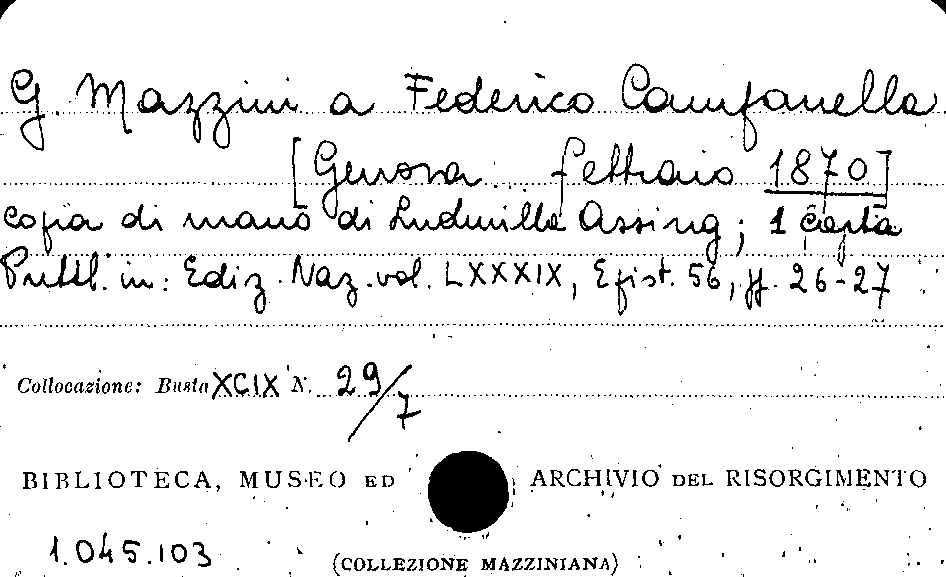 G. Mazzini a Federico Campanella
[Genova febbraio 1870]
copia di mano di Ludmilla Assing; 1 carta
Pubbl. in: Ediz. Naz. vol. LXXXIX, Epist. 56, pp. 26-27
Collocazione: Busta XCIX N. 29/7
BIBLIOTECA, MUSEO ED ARCHIVIO DEL RISORGIMENTO
1.045.103
(COLLEZIONE MAZZINIANA)